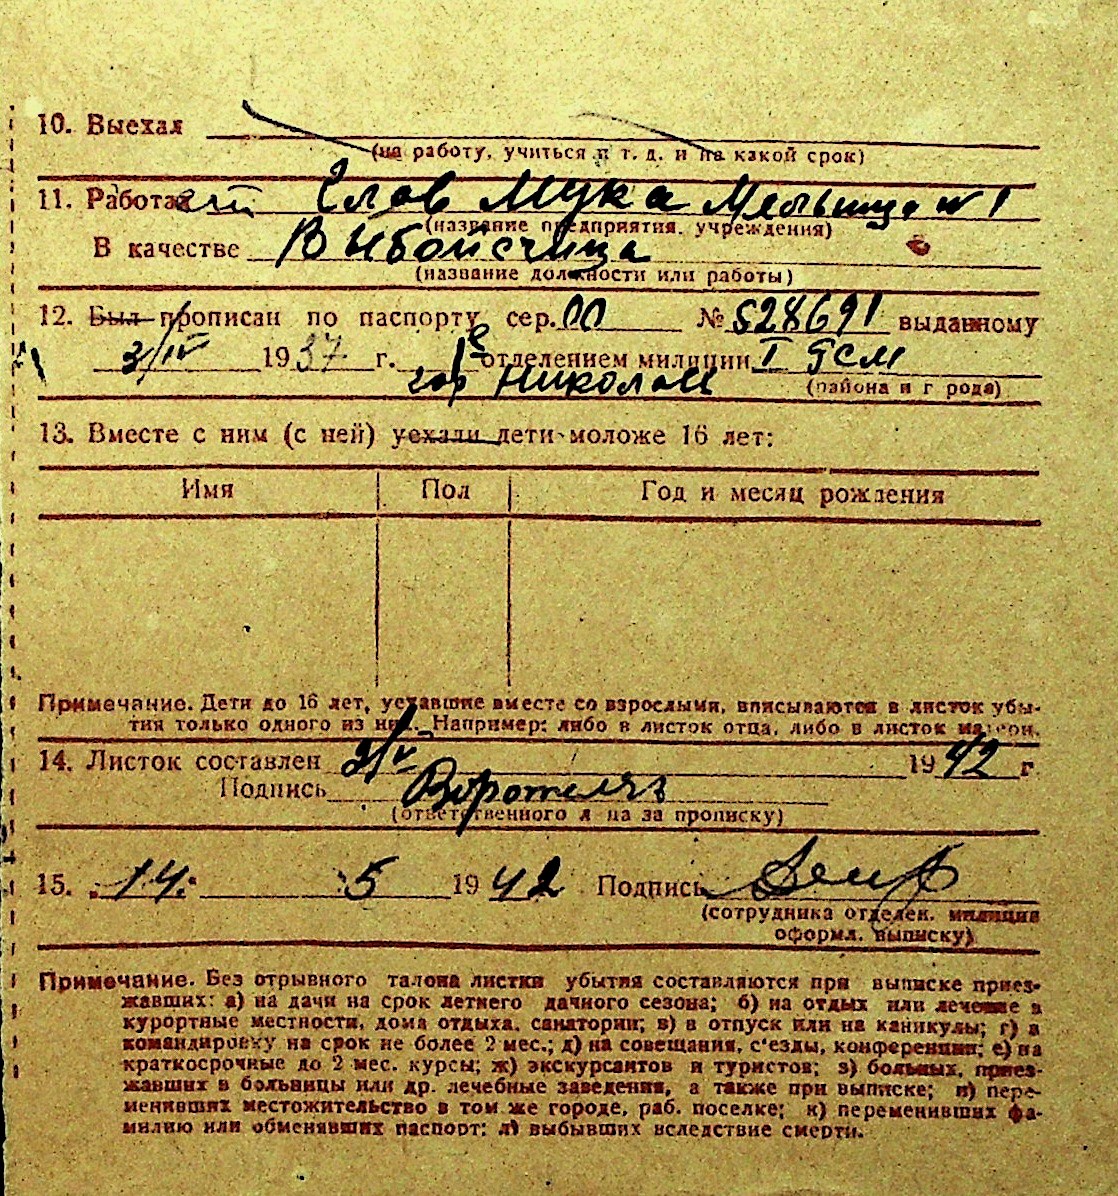 10. Выехал
(на работу, учиться и т. д. и на какой срок)
11. Работает Глав Мука Мельница № 1
(название предприятия, учреждения)
В качестве Выбойсчица
(название должности или работы)
12. Был прописан по паспорту сер. 00 № 528691 выданному
3/IV 1937 г. отделением милиции I ГСМ
гор Николаев
(района и города)
13. Вместе с ним (с ней) уехали дети моложе 16 лет:
Имя Пол Год и месяц рождения
Примечание. Дети до 16 лет, уехавшие вместе со взрослыми, вписываются в листок убы-
тия только одного из них. Например: либо в листок отца, либо в листок матери.
14. Листок составлен 2/V 1942 г
Подпись
(ответственного лица за прописку)
15. 14. 5 1942 Подпись
(сотрудника отделен. милиции
оформл. выписку)
Примечание. Без отрывного талона листки убытия составляются при выписке приез-
жавших: а) на дачи на срок летнего дачного сезона; б) на отдых или лечение в
курортные местности, дома отдыха, санатории; в) в отпуск или на каникулы; г) в
командировку на срок не более 2 мес.; д) на совещания, с'езды, конференции; е) на
краткосрочные до 2 мес. курсы; ж) экскурсантов и туристов; з) больных, приез-
жавших в больницы или др. лечебные заведения, а также при выписке; и) пере-
менивших местожительство в том же городе, раб. поселке; к) переменивших фа-
милию или обменявших паспорт; л) выбывших вследствие смерти.